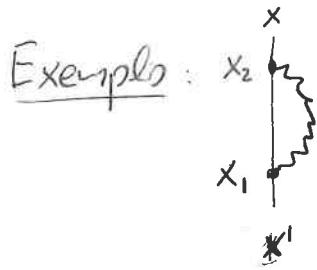 x
Exemplo : x₂
x₁
x'